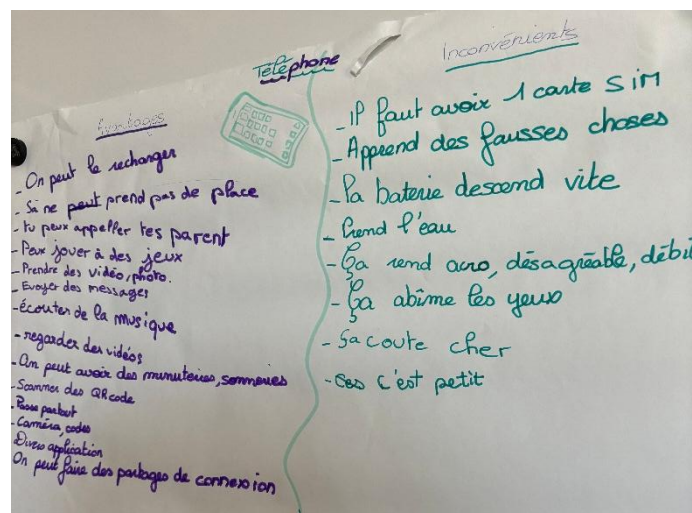 Téléphone
Avantages
- On peut le rechanger
- Sa ne peut prend pas de place
- tu peux appeller tes parent
- Peux jouer à des jeux
- Prendre des vidéo, photo.
- Evoyer des messages
- écouter de la musique
- regarder des vidéos
- On peut avoir des minuteries, sonneries
- Scanner des QR code
- Passe partout
- Caméra, codes
Divers application
On peut faire des partages de connexion
Inconvénients
- Il faut avoir 1 carte SiM
- Apprend des fausses choses
- la baterie descend vite
- Prend l'eau
- Ça rend acro, désagréable, débil
- Ça abîme les yeux
- Sa coute cher
- c'est petit